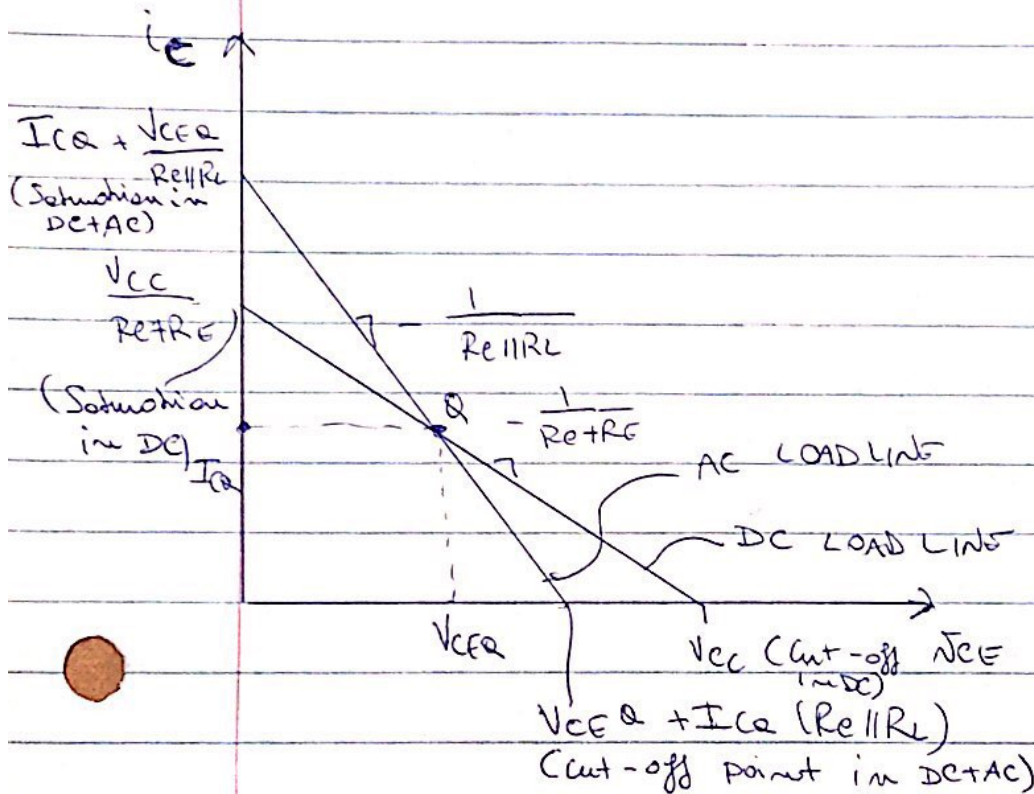 ic
ICQ + VCEQ / Rc||RL
(Saturation in
DC+AC)
VCC / Rc+RE
(Saturation
in DC)
ICQ
- 1 / Rc||RL
Q
- 1 / Rc+RE
AC LOAD LINE
DC LOAD LINE
VCEQ
VCC (Cut-off in DC)
vCE
VCEQ + ICQ (Rc||RL)
(Cut-off point in DC+AC)